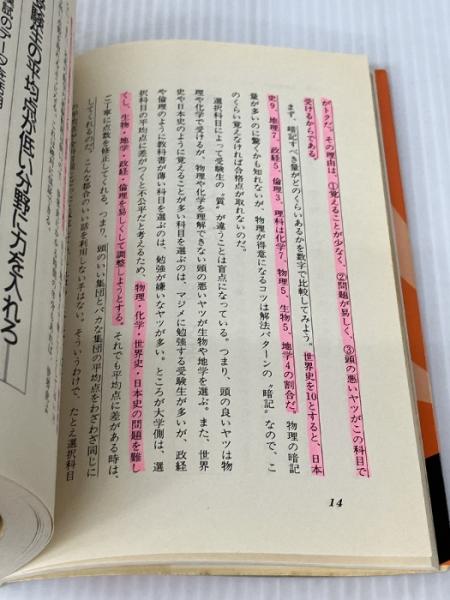 がトクだ。その理由は、①覚えることが少なく、②問題が易しく、③頭の悪いヤツがこの科目で
受けるからである。
まず、暗記すべき量がどのくらいあるかを数字で比較してみよう。世界史を10とすると、日本
史9、地理7、政経5、倫理3、理科は化学7、物理5、生物5、地学4の割合だ。物理の暗記
量が多いのに驚くかも知れないが、物理が得意になるコツは解法パターンの“暗記”なので、こ
のくらい覚えなければ合格点が取れないのだ。
選択科目によって受験生の“質”が違うことは盲点になっている。つまり、頭の良いヤツは物
理や化学で受けるが、物理や化学を理解できない頭の悪いヤツが生物や地学を選ぶ。また、世界
史や日本史のように覚えることが多い科目を選ぶのは、マジメに勉強する受験生が多いが、政経
や倫理のように教科書が薄い科目を選ぶのは、勉強が嫌いなヤツが多い。ところが大学側は、選
択科目の平均点に差がつくと不公平だと考えるため、物理・化学・世界史・日本史の問題を難し
くし、生物・地学・政経・倫理を易しくして調整しようとする。それでも平均点に差がある時は、
ご丁寧に点数を修正してくれる。つまり、頭のいい集団とバカな集団の平均点をわざわざ同じに
してくれるのだ。こんな都合のいい話を利用しない手はない。そういうわけで、たとえ選択科目
14
験生の平均点が低い分野に力を入れろ